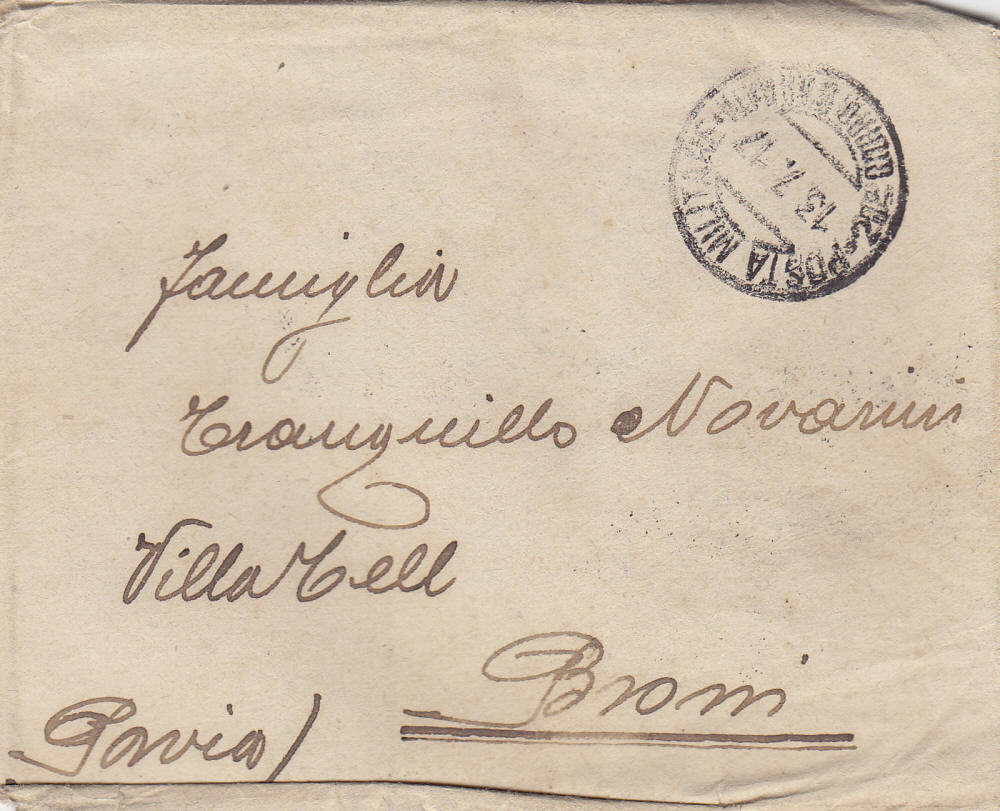 POSTA MILITARE
13.7.17
Famiglia
Tranquillo Novarini
Villa Tell
Broni
(Pavia)